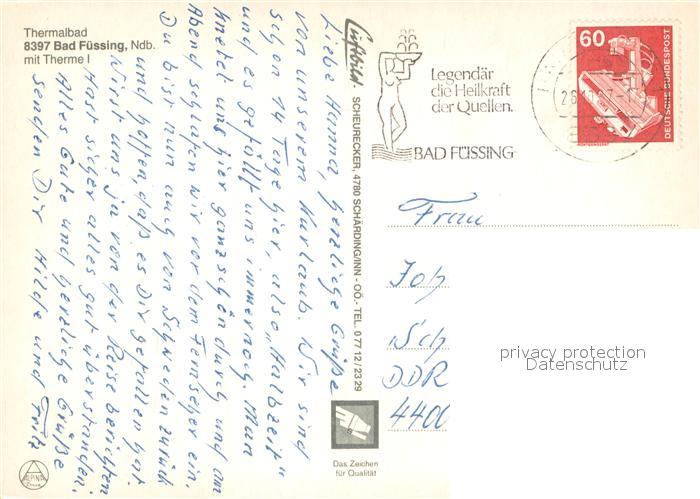 Thermalbad
8397 Bad Füssing, Ndb.
mit Therme I
Liebe Hanna, herzliche Grüße
von unserem Kurlaub. Wir sind
schon 14 Tage hier, also "Halbzeit"
und es gefällt uns immer noch. Man
knetet uns hier ganz schön durch und am
Abend schlafen wir vor dem Fernseher ein.
Du bist nun auch von Schweden zurück
und hoffen, daß es Dir gefallen hat
Wirst uns ja von der Reise berichten
Hast sicher alles gut überstanden.
Alles Gute und herzliche Grüße
senden Dir Hilde und Fritz
ALPINA
Luftbild
SCHEURECKER, 4780 SCHÄRDING/INN - OÖ. - TEL. 0 77 12 / 23 29
Das Zeichen
für Qualität
Legendär
die Heilkraft
der Quellen.
BAD FÜSSING
60
DEUTSCHE BUNDESPOST
RÖNTGENGERÄT
Frau
Joh
Sch
DDR
4400
privacy protection
Datenschutz